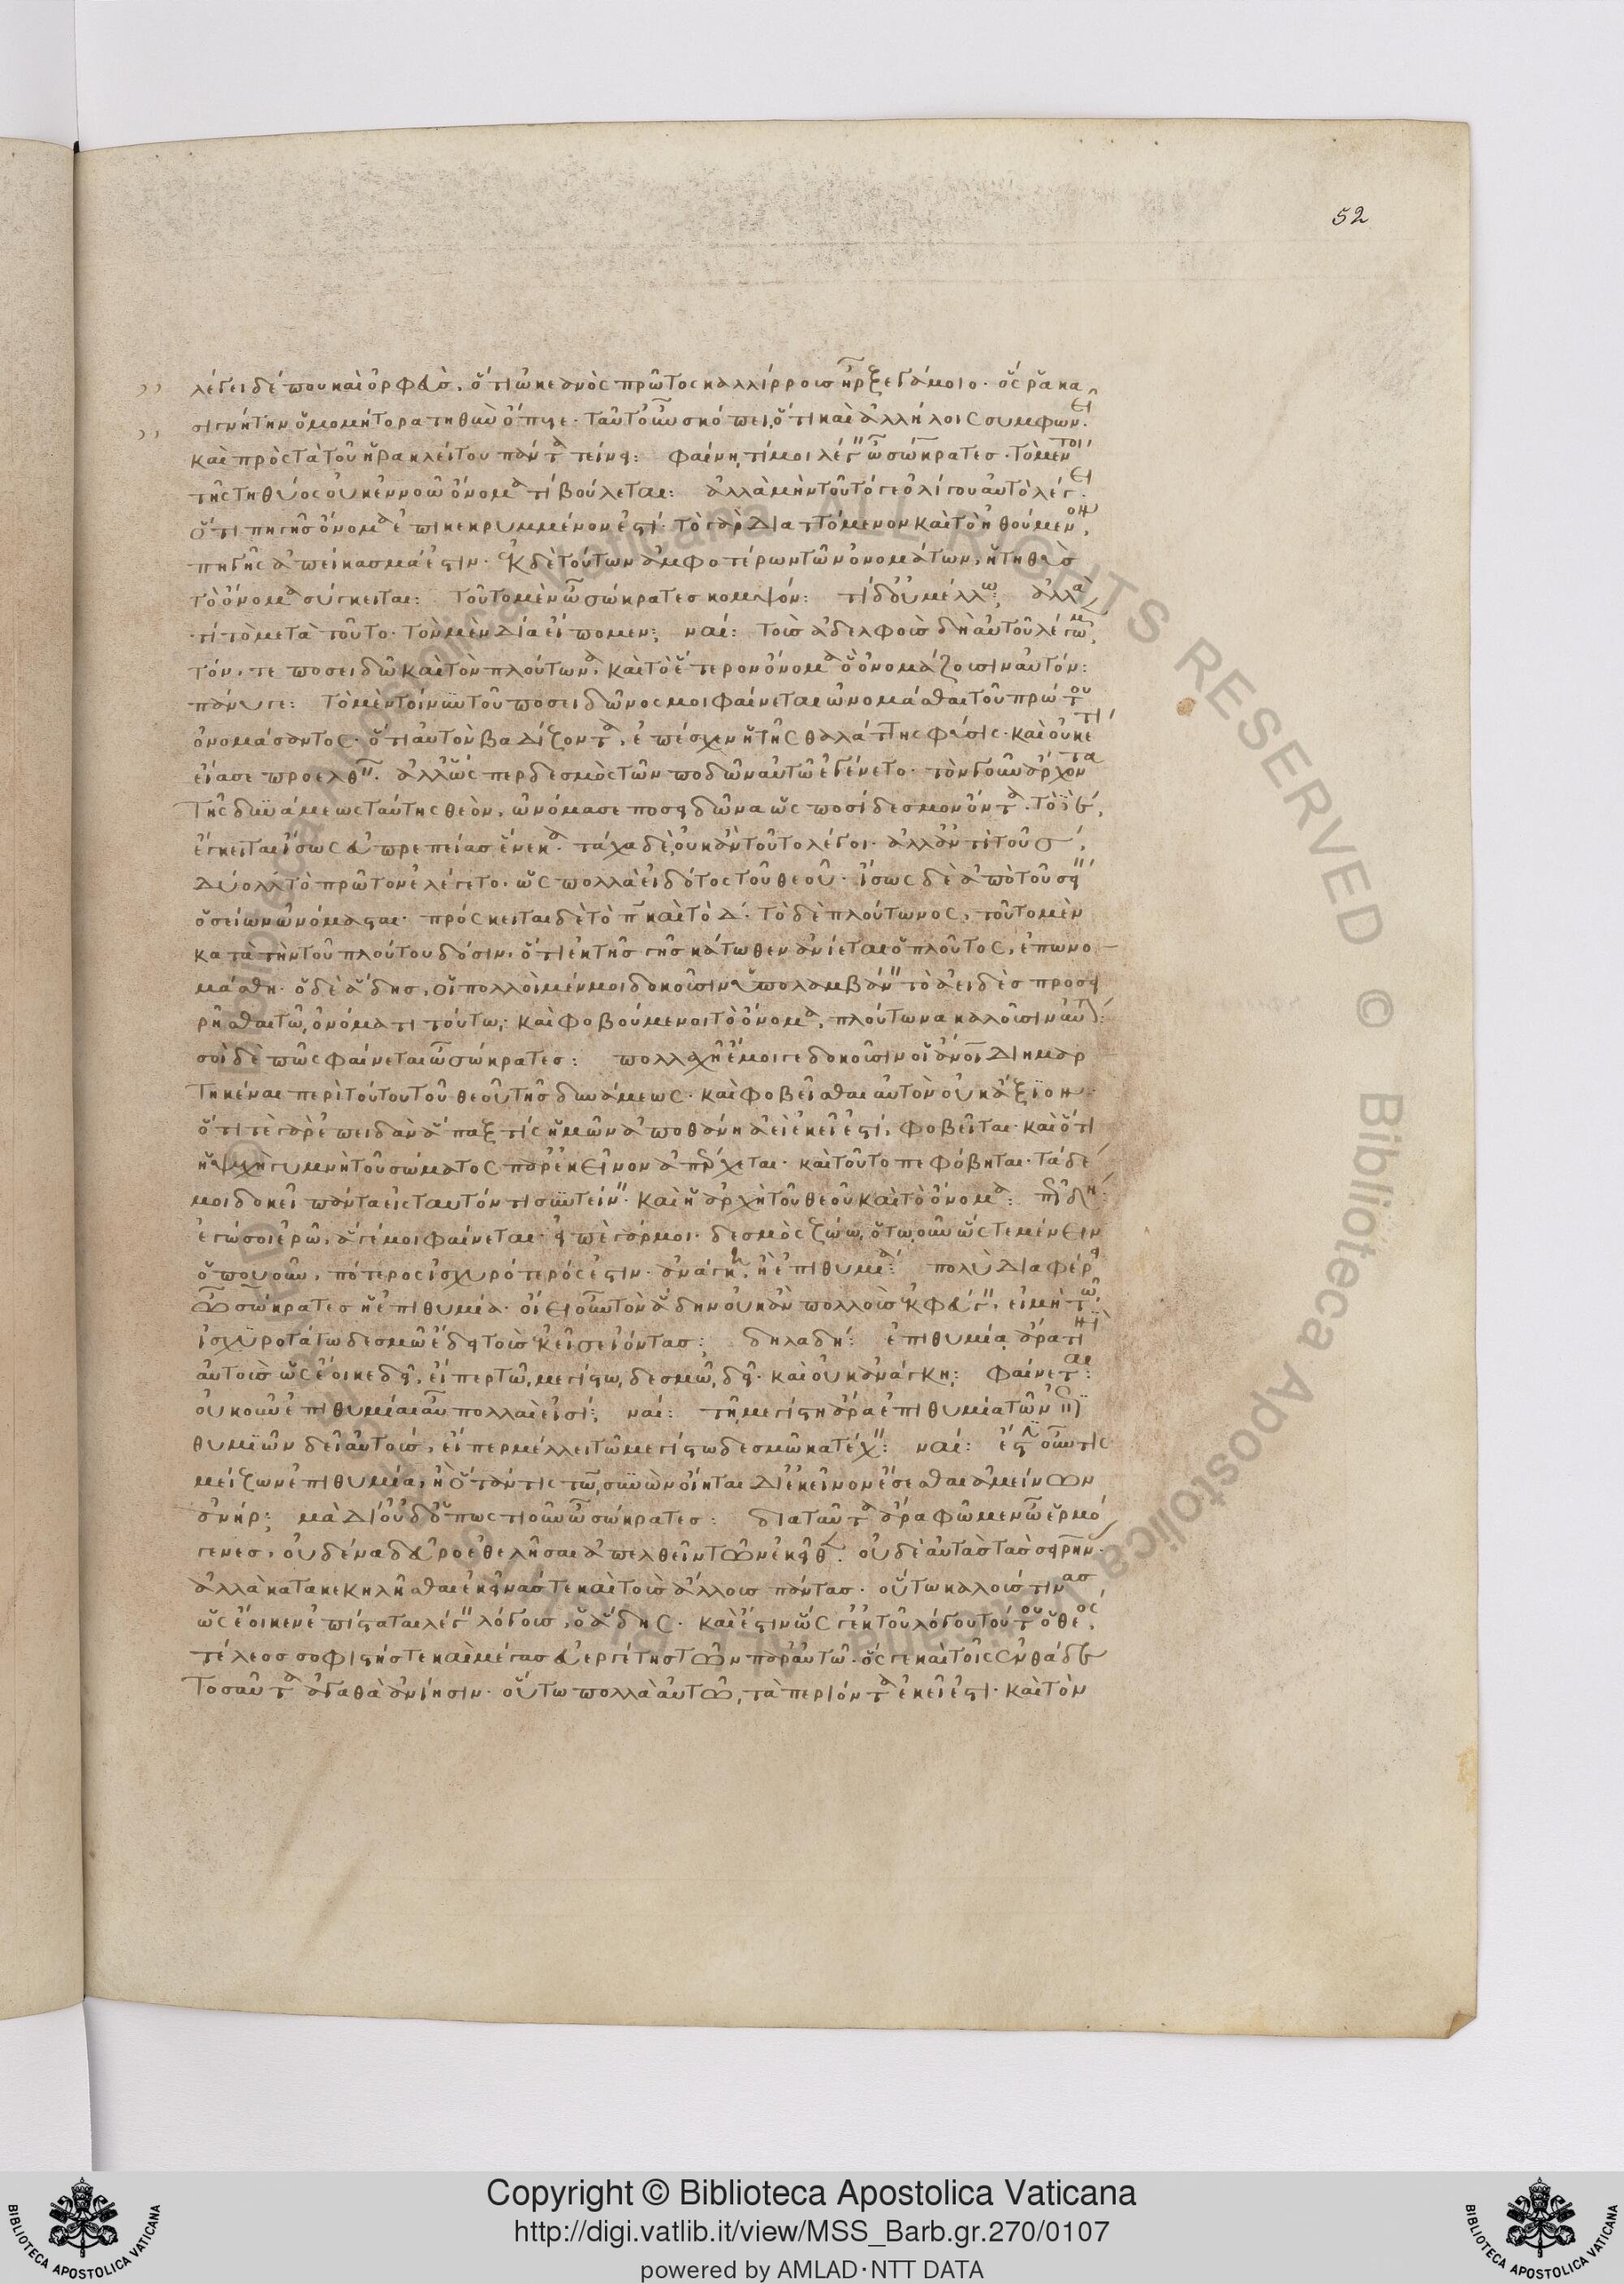 52
λέγει δέ που καὶ ὀρφεὺς. ὅτι ὠκεανὸς πρῶτος καλλίρροος ἦρξε γάμοιο. ὅς ῥα κα
σιγνήτην ὁμομήτορα τηθὺν ὄπυιε. ταῦτ' οὖν σκόπει, ὅτι καὶ ἀλλήλοις συμφωνεῖ.
καὶ πρὸς τὰ τοῦ ἡρακλείτου πάντα τείνει: φαίνῃ τί μοι λέγειν ὦ σώκρατες. τὸ μέντοι
τῆς τηθύος οὐκ ἐννοῶ ὄνομα τί βούλεται: ἀλλὰ μὴν τοῦτό γε ὀλίγου αὐτὸ λέγει.
ὅτι πηγῆς ὄνομα ἐπικεκρυμμένον ἐστί. τὸ γὰρ διαττόμενον καὶ τὸ ἠθούμενον,
πηγῆς ἀπείκασμά ἐστιν. ἐκ δὲ τούτων ἀμφοτέρων τῶν ὀνομάτων, ἡ τηθὺς
τὸ ὄνομα σύγκειται: τοῦτο μὲν ὦ σώκρατες κομψόν: τί δ' οὐ μέλλει; ἀλλὰ
τί τὸ μετὰ τοῦτο. τὸν μὲν δία εἴπομεν; ναί: τοὺς ἀδελφοὺς δὴ αὐτοῦ λέγωμεν,
τόν, τε ποσειδῶ καὶ τὸν πλούτωνα. καὶ τὸ ἕτερον ὄνομα ὃ ὀνομάζουσιν αὐτόν:
πάνυ γε: τὸ μὲν τοίνυν τοῦ ποσειδῶνός μοι φαίνεται ὠνομάσθαι τοῦ πρώτου
ὀνομάσαντος. ὅτι αὐτὸν βαδίζοντα, ἐπέσχεν ἡ τῆς θαλάττης φύσις. καὶ οὐκέτι
εἴασε προελθεῖν. ἀλλ' ὥσπερ δεσμὸς τῶν ποδῶν αὐτῶ ἐγένετο. τὸν γοῦν ἄρχοντα
τῆς δυνάμεως ταύτης θεὸν, ὠνόμασε ποσειδῶνα ὡς ποσίδεσμον ὄντα. τὸ ϊ ε,
ἔγκειται ἴσως εὐπρεπείας ἕνεκα. τάχα δὲ, οὐκ ἂν τοῦτο λέγοι. ἀλλ' ἀντὶ τοῦ σ,
δύο λλ τὸ πρῶτον ἐλέγετο. ὡς πολλὰ εἰδότος τοῦ θεοῦ. ἴσως δὲ ἀπὸ τοῦ σείειν
ὁ σείων ὠνόμασται. πρόσκειται δὲ τὸ π καὶ τὸ δ. τὸ δὲ πλούτωνος, τοῦτο μὲν
κατὰ τὴν τοῦ πλούτου δόσιν. ὅτι ἐκ τῆς γῆς κάτωθεν ἀνίεται ὁ πλοῦτος, ἐπωνο
μάσθη. ὁ δὲ ἅδης, οἱ πολλοὶ μέν μοι δοκοῦσιν ὑπολαμβάνειν τὸ ἀειδὲς προσει
ρῆσθαι τῶ ὀνόματι τούτω. καὶ φοβούμενοι τὸ ὄνομα, πλούτωνα καλοῦσιν αὐτόν:
σοὶ δὲ πῶς φαίνεται ὦ σώκρατες: πολλαχῆ ἔμοιγε δοκοῦσιν οἱ ἄνοι διημαρ
τηκέναι περὶ τούτου τοῦ θεοῦ τῆς δυνάμεως. καὶ φοβεῖσθαι αὐτὸν οὐκ ἄξιον.
ὅτι τε γὰρ ἐπειδὰν ἅπαξ τὶς ἡμῶν ἀποθάνη ἀεὶ ἐκεῖ ἐστί, φοβεῖται. καὶ ὅτι
ἡ ψυχὴ γυμνὴ τοῦ σώματος παρ' ἐκεῖνον ἀπέρχεται. καὶ τοῦτο πεφόβηται. τὰ δέ
μοι δοκεῖ πάντα εἰς ταυτόν τι συντείνειν. καὶ ἡ ἀρχὴ τοῦ θεοῦ καὶ τὸ ὄνομα: πῶς δή:
ἐγώ σοι ἐρῶ, ἅ γέ μοι φαίνεται. εἰπὲ γάρ μοι. δεσμὸς ζώω ὁτωοῦν ὥστε μένειν
ὁπουοῦν, πότερος ἰσχυρότερός ἐστιν. ἀνάγκη, ἢ ἐπιθυμία: πολὺ διαφέρει
ὦ σώκρατες ἡ ἐπιθυμία. οἴει οὖν τὸν ἅδην οὐκ ἂν πολλοὺς ἐκφεύγειν, εἰ μὴ τῶ
ἰσχυροτάτω δεσμῶ ἔδει τοὺς ἐκεῖσε ἰόντας; δηλαδή: ἐπιθυμία ἄρα τινὶ
αὐτοὺς ὡς ἔοικε δεῖ, εἴπερ τῶ μεγίστω δεσμῶ δεῖ. καὶ οὐκ ἀνάγκη; φαίνεται:
οὐκοῦν ἐπιθυμίαι αὖ πολλαὶ εἰσί; ναί: τῆ μεγίστη ἄρα ἐπιθυμία τῶν ἐπι
θυμιῶν δεῖ αὐτοὺς, εἴπερ μέλλει τῶ μεγίστω δεσμῶ κατέχειν: ναί: ἔστιν οὖν τίς
μείζων ἐπιθυμία, ἢ ὅταν τίς τω συνὼν οἴηται δι' ἐκεῖνον ἔσεσθαι ἀμείνων
ἀνήρ; μὰ δί' οὐδ' ὁπωστιοῦν ὦ σώκρατες: διὰ ταῦτα ἄρα φῶμεν ὦ ἑρμό
γενες, οὐδένα δεῦρο ἐθελῆσαι ἀπελθεῖν τῶν ἐκεῖθεν. οὐδὲ αὐτὰς τὰς σειρῆνας.
ἀλλὰ κατακεκηλῆσθαι ἐκείνας τε καὶ τοὺς ἄλλους πάντας. οὕτω καλούς τινας
ὡς ἔοικεν ἐπίσταται λέγειν λόγους, ὁ ἅδης. καὶ ἔστιν ὥς γ' ἐκ τοῦ λόγου τούτου ὁ θεός,
τέλεος σοφιστής τε καὶ μέγας εὐεργέτης τῶν παρ' αὐτῶ. ὅς γε καὶ τοῖς ἐνθάδε
τοσαῦτα ἀγαθὰ ἀνίησιν. οὕτω πολλὰ αὐτῶ, τὰ περιόντα ἐκεῖ ἐστί. καὶ τὸν
Copyright © Biblioteca Apostolica Vaticana
http://digi.vatlib.it/view/MSS_Barb.gr.270/0107
powered by AMLAD·NTT DATA